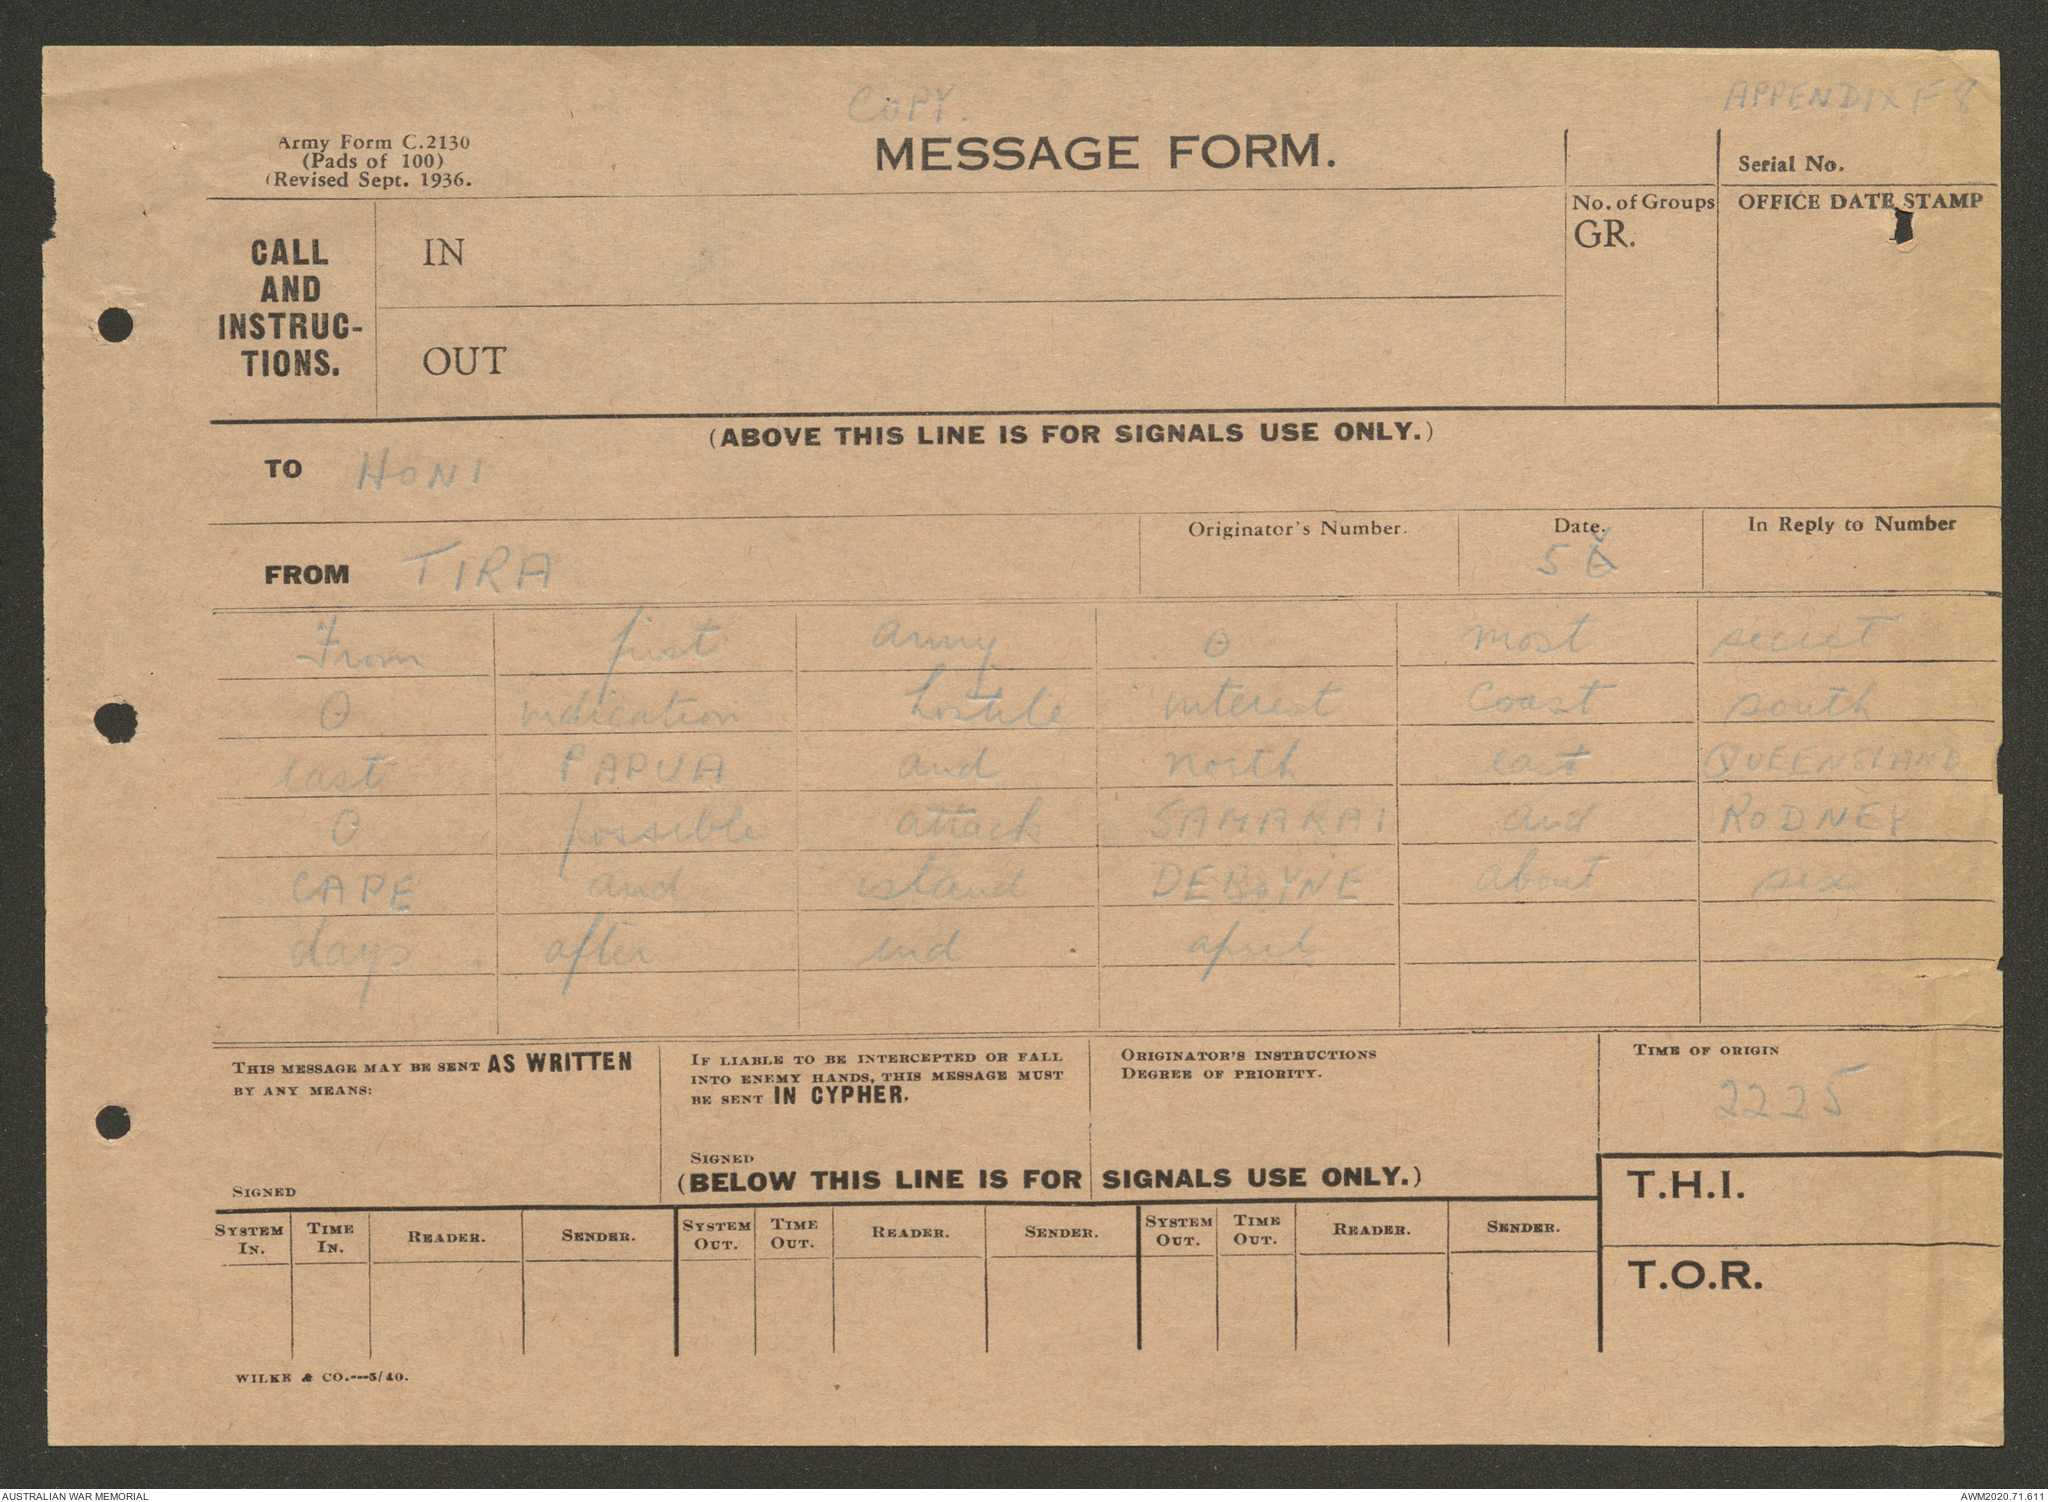 COPY.
APPENDIX F 8
Army Form C.2130
(Pads of 100)
(Revised Sept. 1936.
MESSAGE FORM.
Serial No.
CALL AND INSTRUC-TIONS.
IN
OUT
No. of Groups
GR.
OFFICE DATE STAMP
(ABOVE THIS LINE IS FOR SIGNALS USE ONLY.)
TO HONI
FROM TIRA
Originator's Number.
Date.
5
In Reply to Number
From first army O most secret
O indication hostile interest coast south
east PAPUA and north east QUEENSLAND
O possible attack SAMARAI and RODNEY
CAPE and island DEBOYNE about six
days after end april
THIS MESSAGE MAY BE SENT AS WRITTEN
BY ANY MEANS:
SIGNED
IF LIABLE TO BE INTERCEPTED OR FALL
INTO ENEMY HANDS, THIS MESSAGE MUST
BE SENT IN CYPHER.
SIGNED
ORIGINATOR'S INSTRUCTIONS
DEGREE OF PRIORITY.
TIME OF ORIGIN
2225
(BELOW THIS LINE IS FOR SIGNALS USE ONLY.)
T.H.I.
T.O.R.
SYSTEM IN. TIME IN. READER. SENDER. SYSTEM OUT. TIME OUT. READER. SENDER. SYSTEM OUT. TIME OUT. READER. SENDER.
WILKE & CO.---5/40.
AUSTRALIAN WAR MEMORIAL
AWM2020.71.611